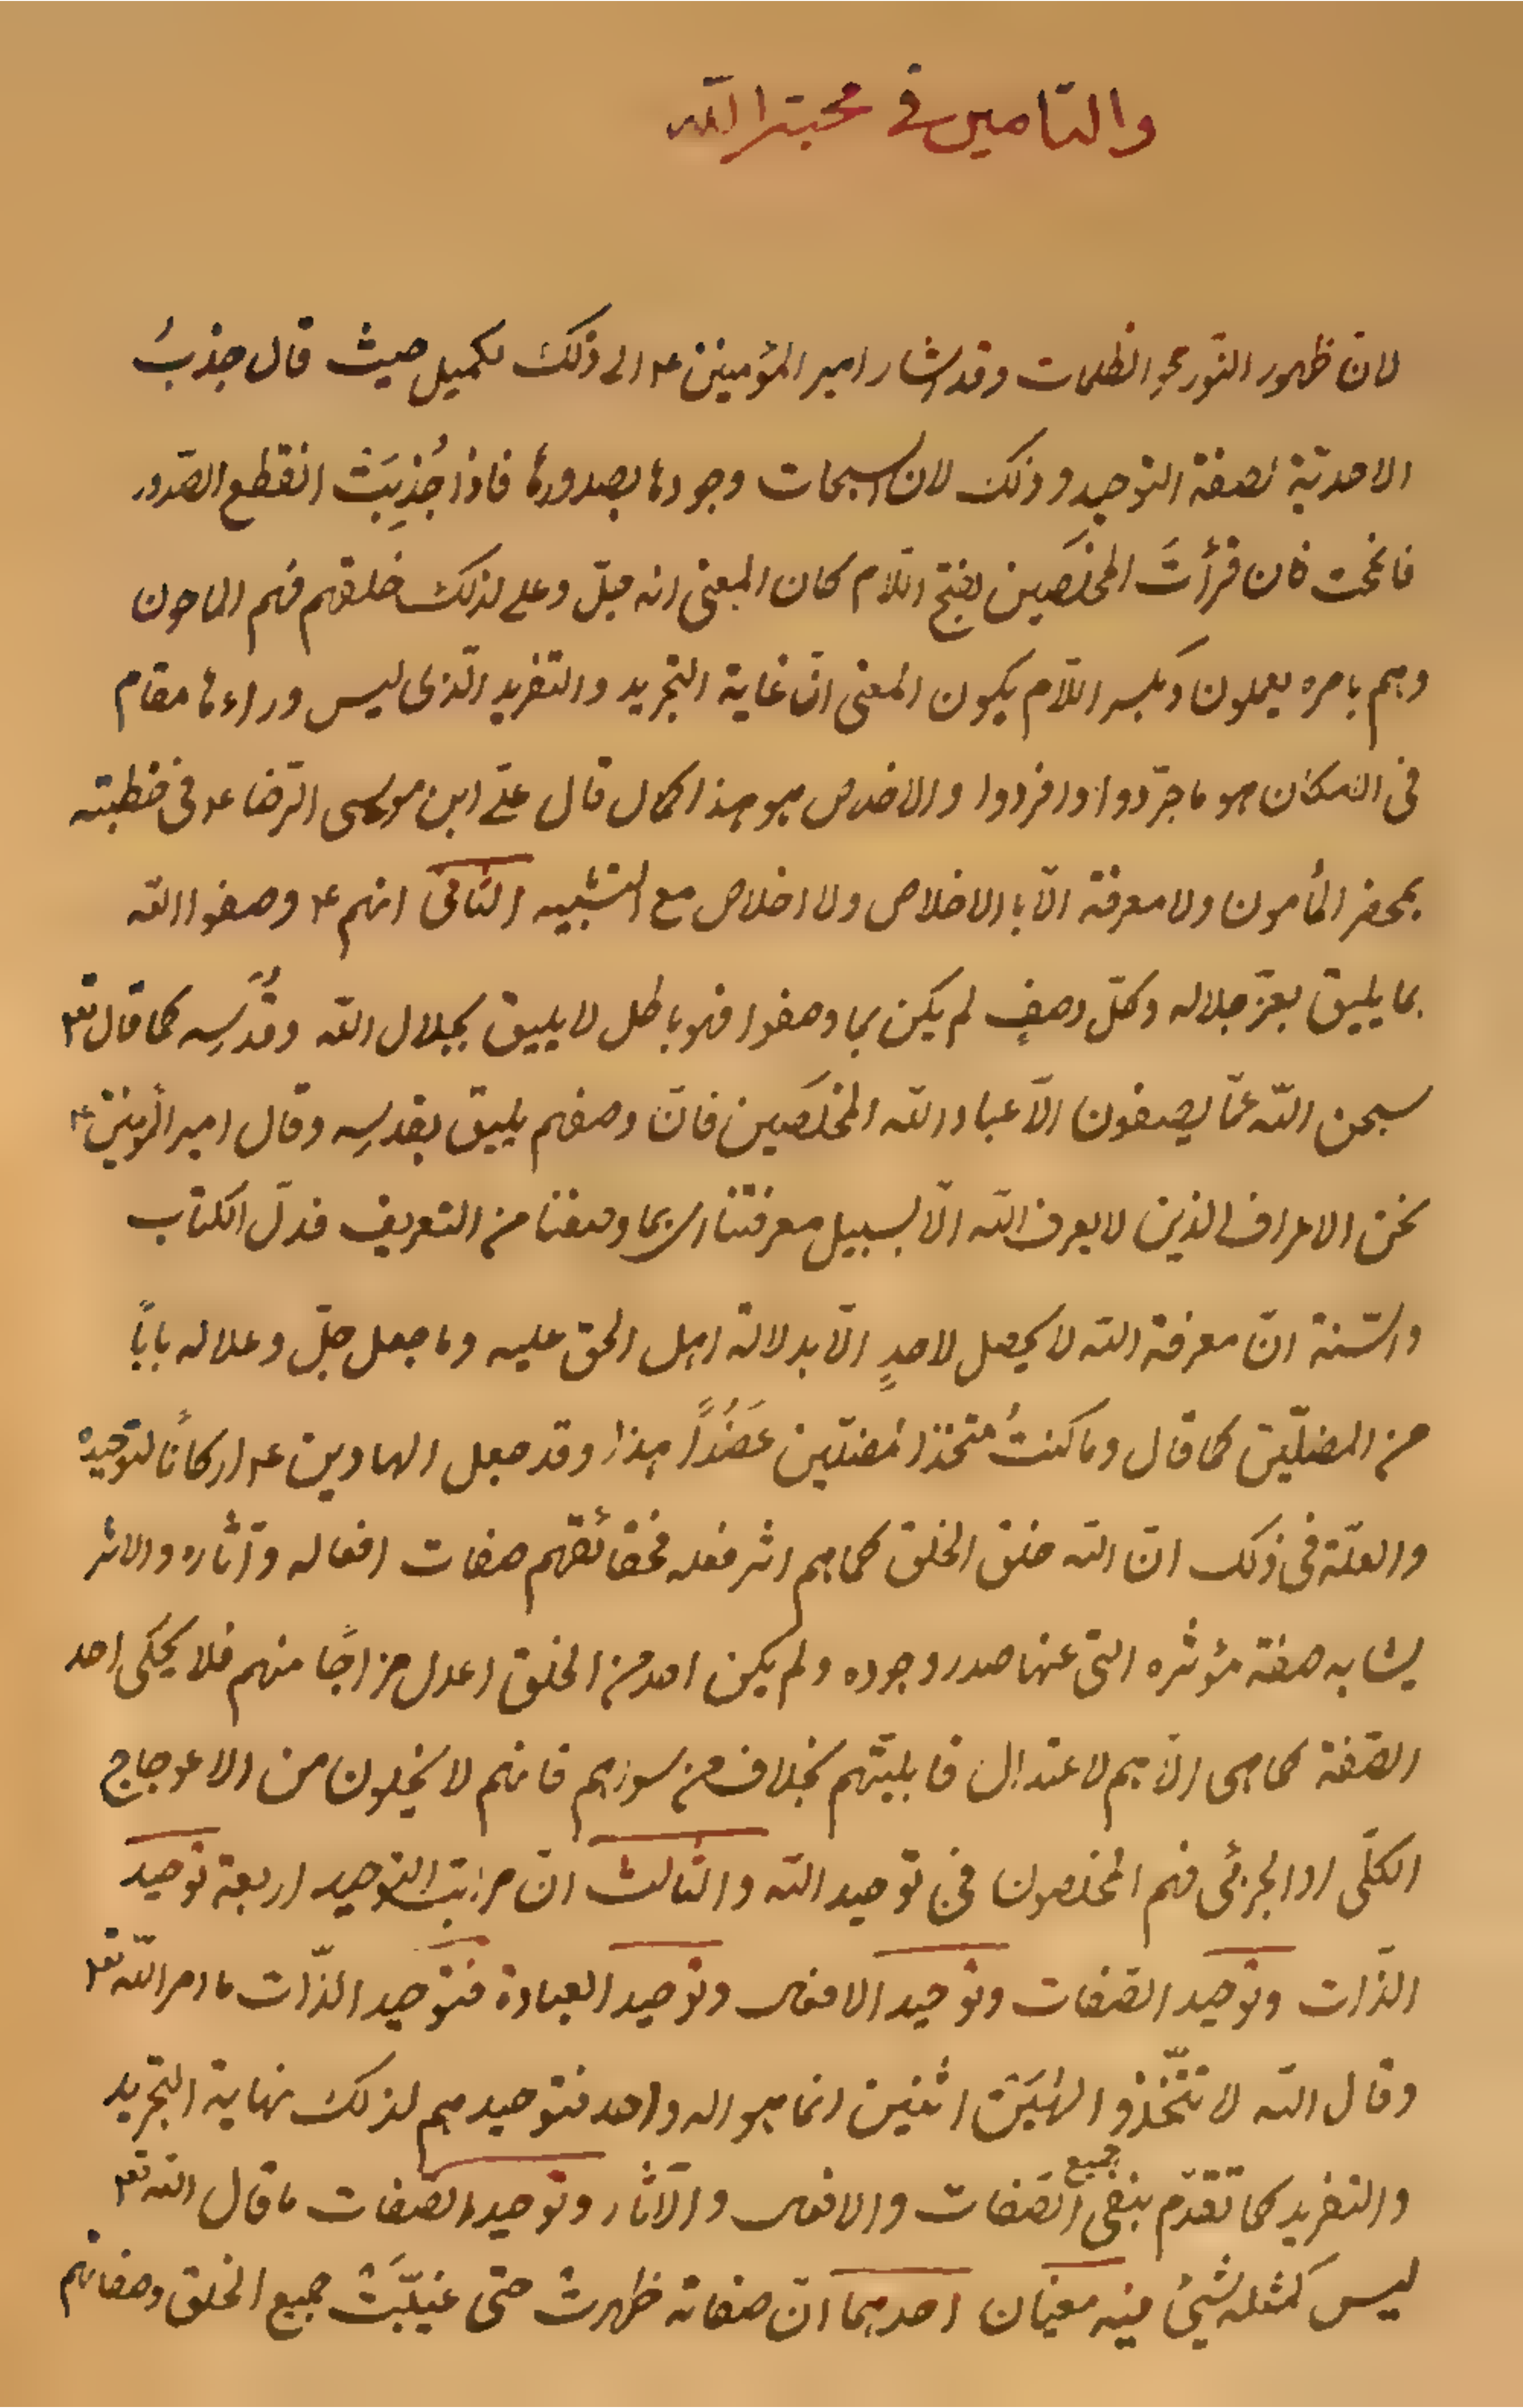 والتامين في محبة الله
لان ظهور النّور محو الظلمات وقد اشار امير المؤمنين ع الى ذلك لكميل حيث قال جذبُ
الاحديّة لصفة التوحيد وذلك لان السبحات وجودها بصدورها فاذا جُذِبَت انقطع الصّدور
فانمحت فان قرأتَ المخلَصين بفتح اللّام كان المعنى انه جلّ وعلى لذلك خلقهم فهم الماحون
وهم بامره يعملون وبكسر اللّام يكون المعنى انّ غاية التجريد والتفريد الّذى ليس وراءها مقام
فى الامكان هو ما جرّدوا وافردوا والاخلاص هو هذا كمال قال علىّ ابن موسى الرّضا ع فى خطبته
بمحضر المأمون ولا معرفة الّا بالاخلاص ولا اخلاص مع التشبيه الثّانى انهم ع وصفوا اللّه
بما يليق بعزّ جلاله وكلّ وصفٍ لم يكن بما وصفوا فهو باطل لا يليق بجلال اللّه وقُدسِه كما قال تعٰ
سبحن اللّه عمّا يصفون الّا عباد اللّه المخلَصين فانّ وصفهم يليق بقدسِه وقال امير المؤمنين ع
نحن الاعراف الذين لا يعرف اللّه الّا بسبيل معرفتنا اى بما وصفنا من التعريف فدلّ الكتاب
والسّنة انّ معرفة اللّه لا يحصل لاحدٍ الّا بدلالة اهل الحق عليه وما جعل جلّ وعلا له باباً
من المضلّين كما قال وما كنتُ متخذ المضلّين عَضُداً هذا وقد جعل الهادين ع اركاناً لتوحيده
والعلّة فى ذلك انّ اللّه خلق الخلق كما هم اثر فعله فحقائقهم صفات افعاله وآثاره والاثر
يشابه صفة مؤثره التى عنها صدر وجوده ولم يكن احد من الخلق اعدل مزاجًا منهم فلا يحكى احد
الصّفة كما هى الّا هم لاعتدال قابليّتهم بخلاف من سواهم فانهم لا يخلون من الاعوجاج
الكلّى او الجزئى فهم المخلصون فى توحيد اللّه والثّالث انّ مراتب التوحيد اربعة توحيد
الذّات وتوحيد الصّفات وتوحيد الافعال وتوحيد العبادة فتوحيد الذّات ما امر اللّه تعٰ
وقال اللّه لا تتّخذوا الهَيْن اثنين انما هو اله واحد فتوحيدهم لذلك نهاية التجريد
والتفريد كما تقدّم بنفى جميع الصّفات والافعال والآثار وتوحيد الصّفات ما قال اللّه تعٰ
ليس كمثله شىءٌ فيه معنيان احدهما انّ صفاته ظهرت حتى غيّبَت جميع الخلق وصفاتهم